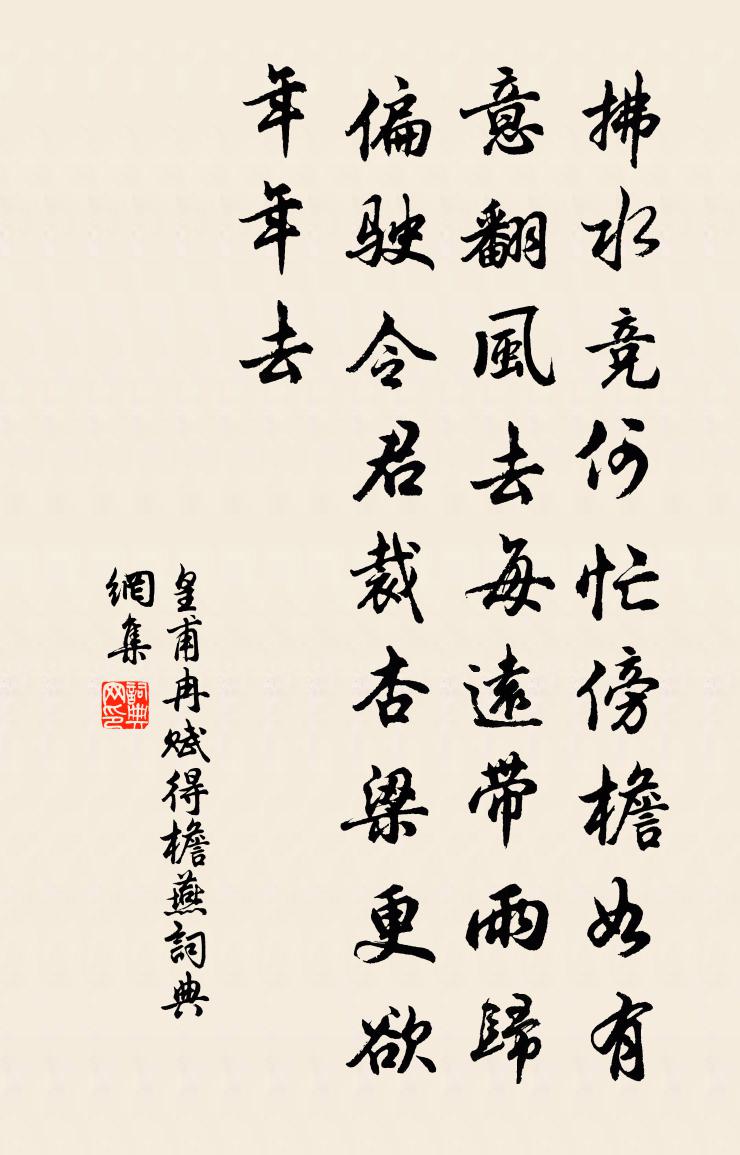 拂水竞何忙傍檐如有
意翻風去每遠帶雨歸
偏駛令君裁杏梁更欲
年年去
皇甫冉賦得檐燕詞典
網集
詞典网印